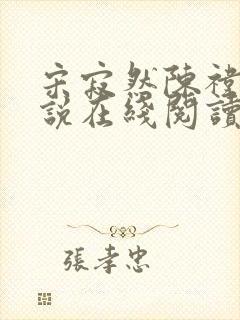 宋寂然陳禕
說在綫閱讀
張孝忠